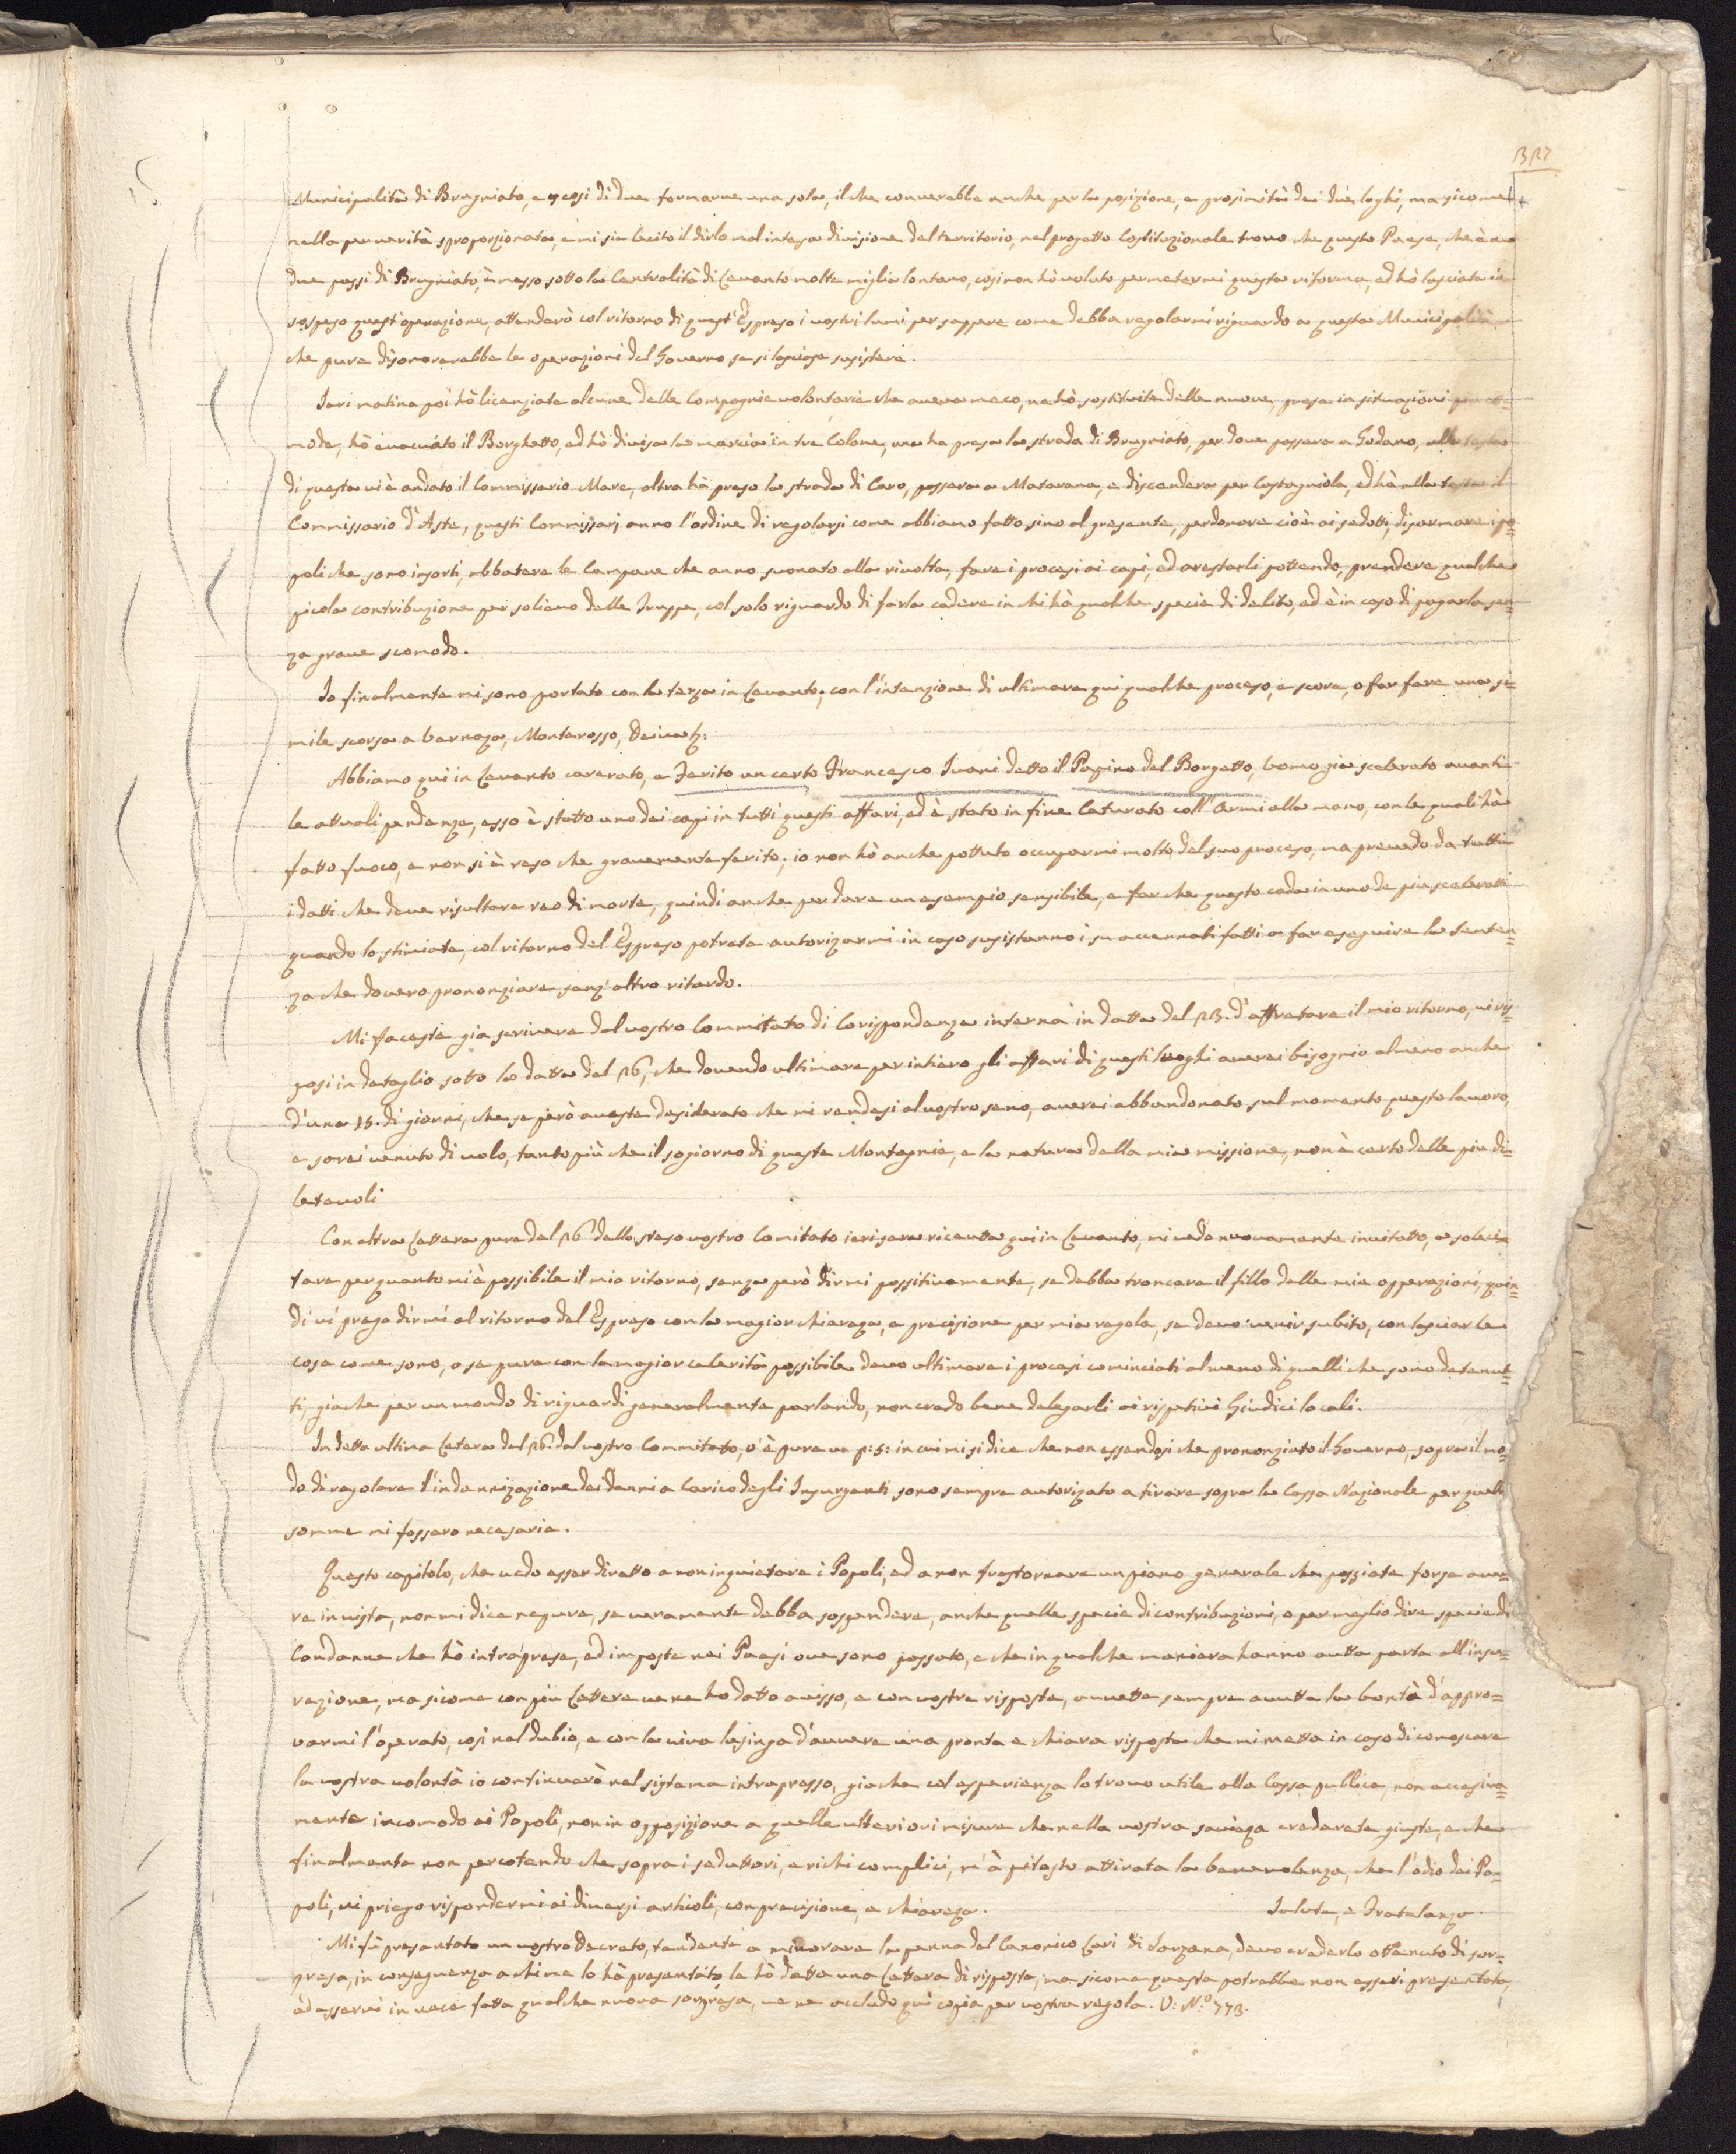 Municipalità di Brugniato, e così di due formarne una sola, il che converebbe anche per la posizione, e prosimità dei due loghi, ma sicome
nella per verità sproporzionata, e mi sia lecito il dirlo mal intesa divisione del territorio, nel progetto Costituzionale trovo che questo Paese, che è a
due passi di Brugniato, è messo sotto la Centralità di Levanto molte miglia lontano, così non hò voluto permetermi questa riforma, ed hò lasciata in
sospeso quest'operazione, attenderò col ritorno di quest'Espreso i vostri lumi per sappere come debba regolarmi riguardo a questa Municipalità
che pure disonorerebbe le operazioni del Governo se si lasciase susistere.
Ieri matina poi hò licenziate alcune delle Compagnie volontarie che aveva meco, ne hò sostituite delle nuove, prese in situazioni più co=
mode, hò evacuato il Borghetto, ed hò divisa la marcia in tre Colone, una ha presa la strada di Brugniato, per dove passerà a Godano, alla testa
di questa vi è andato il Commissario Mare, altra hà preso la strada di Caro, passerà a Matarana, e discenderà per Castagnòla, ed hà alla testa il
Commissario D'Aste, questi Commissarj anno l'ordine di regolarsi come abbiamo fatto sino al presente, perdonare cioè ai sedotti, disarmare i po=
poli che sono insorti, abbatere le Campane che anno suonato alla rivolta, fare i procesi ai capi, ed arestarli pottendo, prendere qualche
picola contribuzione per solievo delle Truppe, col solo riguardo di farla cadere in chi hà qualche specie di delito, ed è in caso di pagarla sen=
za grave scomodo.
Io finalmente mi sono portato con la terza in Levanto, con l'intenzione di ultimare qui qualche proceso, e score, o far fare una si=
mile scorsa a Vernaza, Monterosso, Deiva &:
Abbiamo qui in Levanto carcerato, e ferito un certo Francesco Ivani detto il Papino del Borgetto, Uomo già scelerato avanti
le attuali pendenze, esso è statto uno dei capi in tutti questi affari, ed è stato in fine Caturato coll'Armi alla mano, con le quali hà
fatto fuoco, e non si è reso che gravemente ferito; io non hò anche pottuto occuparmi molto del suo proceso, ma prevedo da tutti
i datti che deve risultare reo di morte, quindi anche per dare un esempio sensibile, e far che questo cada in uno de più scelerati
quando lo stimiate, col ritorno del Espreso potrete autorizarmi in caso susistanno i su accennati fatti a far eseguire la Senten=
za che dovero prononziare senz'altro ritardo.
Mi faceste già scrivere dal vostro Commitato di Corispondenza interna in datta del 23. d'affretare il mio ritorno, vi ris=
posi in detaglio sotto la datta del 26, che dovendo ultimare per intiero gli affari di questi luoghi averei bisognio almeno anche
d'una 15. di giorni, che se però aveste desiderato che mi rendesi al vostro seno, averei abbandonato sul momento questo lavoro,
e sarei venuto di volo, tanto più che il sogiorno di queste Montagnie, e la natura della mia missione, non è certo delle più di=
letevoli
Con altra Lettera pure del 26 dallo steso vostro Comitato ieri sera riceutta qui in Levanto, mi vedo nuovamente invitatto, a soleci=
tare per quanto mi è possibile il mio ritorno, senza però dirmi possitivamente, se debba troncare il fillo delle mie opperazioni, quin=
di vi prego dirmi al ritorno del Espreso con la magior chiareza, e precisione per mia regola, se devo venir subito, con lasciar le
cose come sono, o se pure con la magior celerità possibile devo ultimare i procesi cominciati almeno di quelli che sono detenut=
ti, giache per un mondo di riguardi generalmente parlando, non credo bene delegarli ai rispetivi Giudici locali.
In detta ultima Letera del 26. del vostro Commitatto, v'è pure un p: s: in cui mi si dice che non essendosi che prononziato il Governo, sopra il mo=
do di regolare l'indennizazione dei danni a Carico degli Insurgenti sono sempre autorizato a tirare sopra la Cassa Nazionale per quelle
somme mi fossero necesarie.
Questo capitolo, che vedo esser diretto a non inquietare i Popoli, ed a non frastornare un piano generale che possiate forse ave=
re in vista, non mi dice nepure, se veramente debba sospendere, anche quelle specie di contribuzioni, o per meglio dire specie di
Condanne che hò intraprese, ed imposte nei Paesi ove sono passato, e che in qualche maniera hanno autta parte all'insu=
razione, ma sicome con più Lettere ve ne ho datto aviso, e con vostre risposte, avette sempre avutta la bontà d'appro=
varmi l'operato, così nel dubio, e con la viva lusinga d'avvere una pronta e chiara risposta che mi metta in caso di conoscere
la vostra volontà io continuerò nel sistema intrapresso, giache col esperienza lo trovo utile alla Cossa publica, non eccesiva=
mente incomodo ai Popoli, non in opposizione a quelle ulteriori misure che nella vostra savieza crederete giuste, e che
finalmente non percotendo che sopra i seduttori, e richi complici, m'à pitosto attirata la benevolenza, che l'odio dei Po=
poli, vi priego rispondermi ai diversi articoli, con precisione, e chiareza. Salute, e Fratelanza.
Mi fù presentato un vostro Decreto, tendente a minorare la penna del Canonico Cari di Sarzana, devo crederlo ottenuto di sor=
presa, in conseguenza a chi me lo hà presentato le hò datta una Lettera di risposta, ma sicome questa potrebbe non esservi presentata,
ed esservi in vece fatta qualche nuova sorpresa, ve ne accludo qui copia per vostra regola. V: N.º 773.